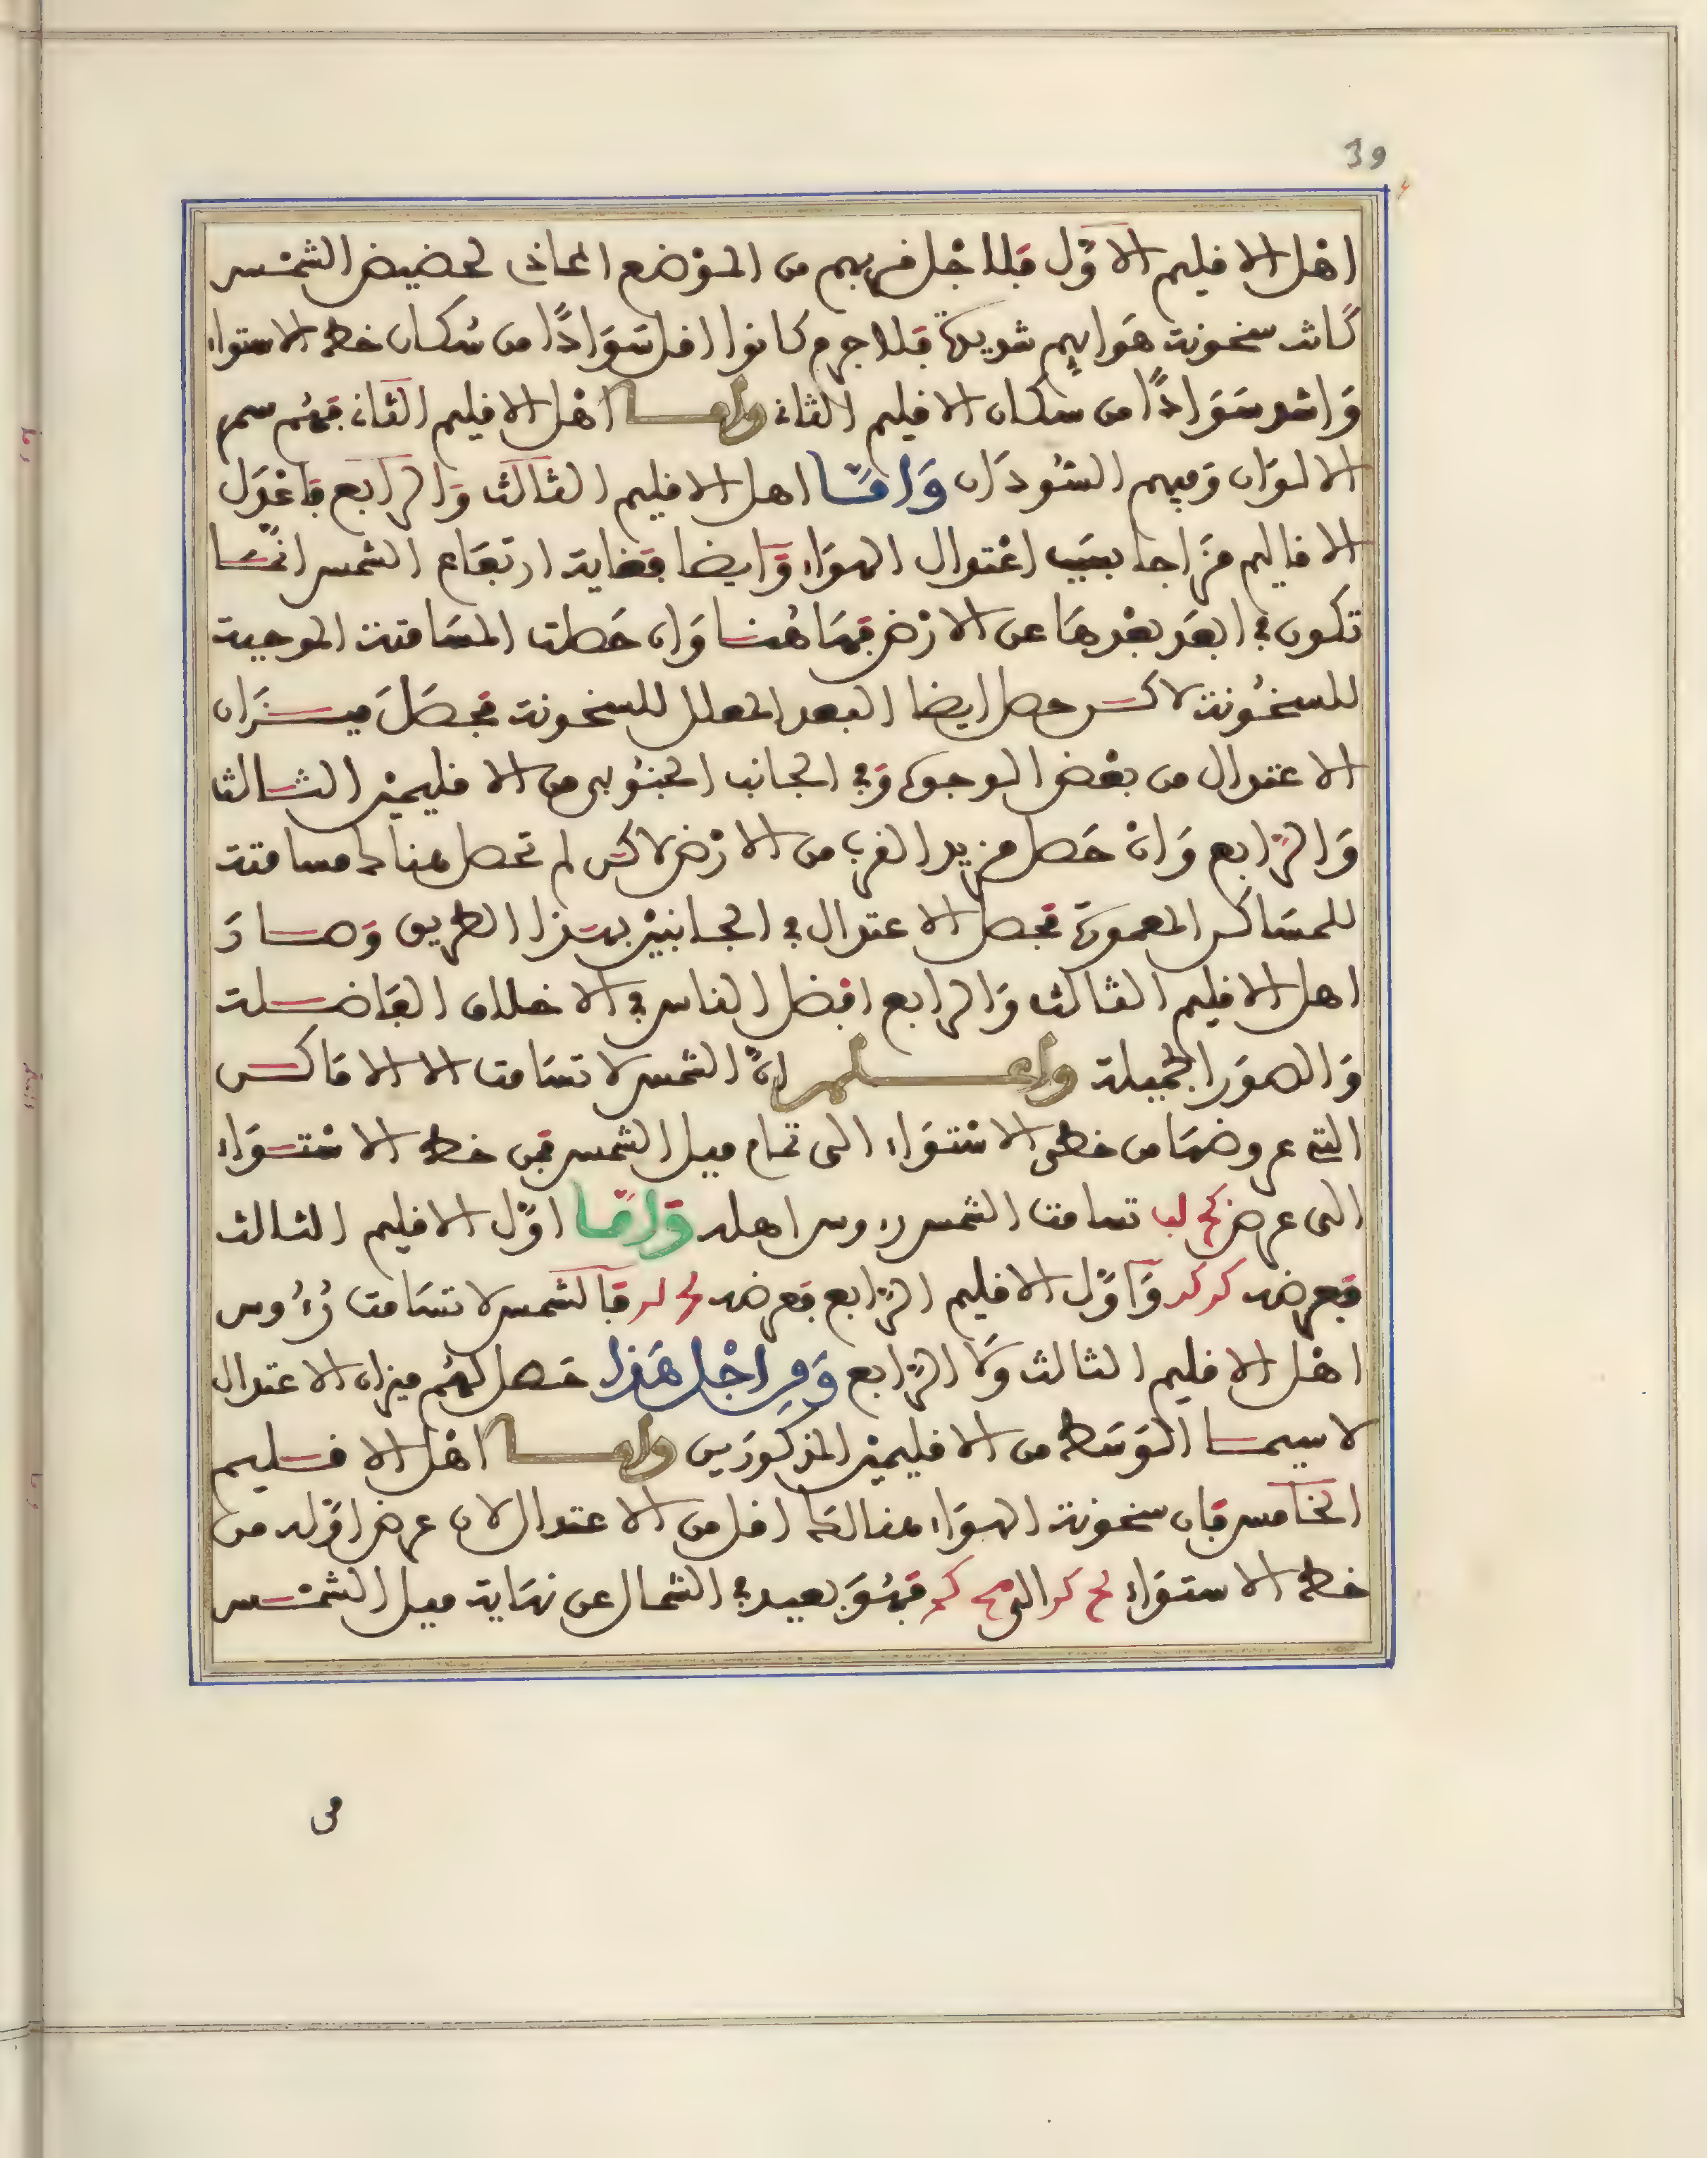 39
اهْل الاقليم الاَوّل فلاجْل قربهم من الموْضع المحاذى لحضيض الشمْس
كَانت سخونة هَوَايهِم شديدة فلاجرم كانوا اقل سَوَادًا من سُكان خط الاستواء
وَاشد سَوَادًا من سكان الاقليم الثانى واما اهْل الاقليم الثانى فهُم سمر
الالوَان وَفيهم السُّودَان وَامَّا اهل الاقليم الثالث وَالرابع فاعْدَل
الاقاليم مزَاجا بسَبب اعْتدال الهوَاء وَايضا فغاية ارتفَاع الشمس انّمَا
تكون فى ابعَد بعْدهَا عن الارْض فهَاهُنا وَان حَصلت المسَامتة الموجبة
للسخُونة لاكن حصل ايضا البعد المعلل للسخونة فحصَلَ ميزَان
الاعتدال من بعْض الوجوه وَفى الجانب الجنُوبى من الاقليميْن الثالث
وَالرَّابع وَانْ حَصل مزيد القرب من الارْض لاكن لم تحصل هناك مسامتة
للمسَاكن المعمورَة فحصل الاعتدال فى الجانبيْن بهذا الطريق وَصارَ
اهل الاقليم الثالث وَالرابع افضل الناس فى الاخلاق الفَاضلة
وَالصوَر الجميلة واعلم انّ الشمس لا تسَامت الا الامَاكن
التى عروضهَا من خطى الاسْتوَاء الى تمام ميل الشمس فمن خط الاسْتوَاء
الى عرض كج لب تسامت الشمس رءوس اهله وَامّا اوّل الاقليم الثالث
فعرضه كز كز وَاوّل الاقليم الرّابع فعرضه لج لز فالشمس لا تسَامت رُءُوس
اهْل الاقليم الثالث وَلَا الرّابع وَمِن اجْل هَذا حَصل لهُم ميزان الاعتدال
لاسيما الوَسَط من الاقليميْن المذكورَين واما اهْل الاقليم
الخَامس فان سخونة الهوَاء هنالكَ اقل من الاعتدال لان عرض اوّله من
خط الاستوَاء لح كز الى مج كح فهُوَ بعيد فى الشمال عن نهَاية ميل الشمْس
من